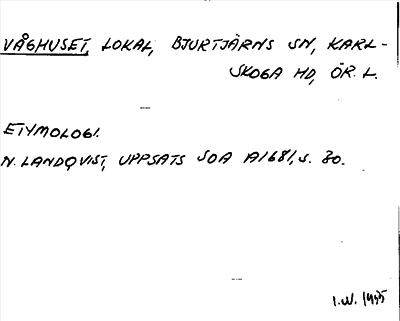 VÅGHUSET, LOKAL, BJURTJÄRNS SN, KARL-
SKOGA HD, ÖR. L.
ETYMOLOGI.
N. LANDQVIST, UPPSATS SOA A1681, S. 30.
I.W. 1955